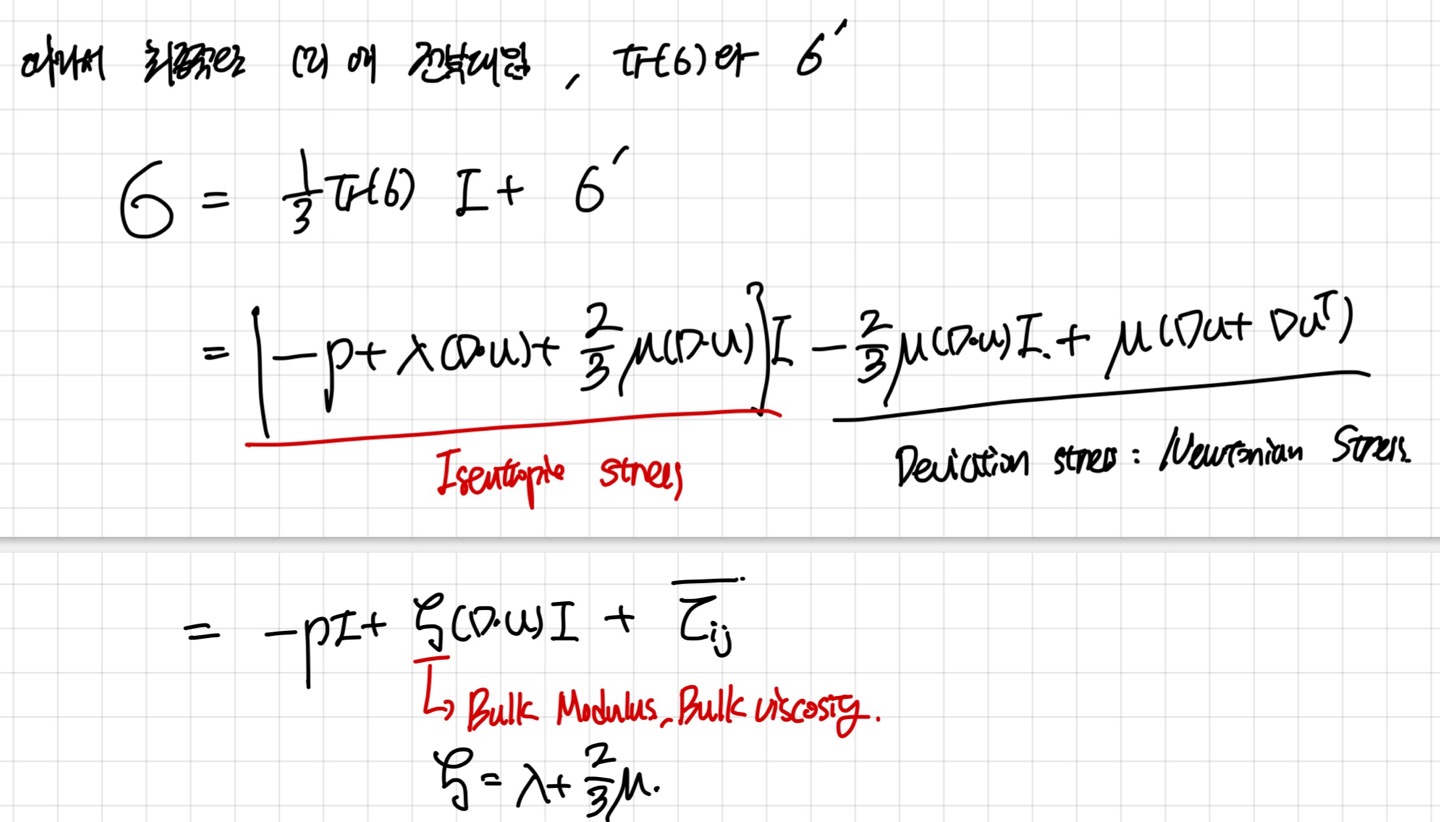 따라서 최종적으로 (2)에 전부대입, Tr(σ)와 σ′
σ = 1/3 Tr(σ) I + σ′
= [-p + λ(∇·u) + 2/3 μ(∇·u)] I - 2/3 μ(∇·u) I + μ(∇u + ∇uᵀ)
Isentropic stress
Deviation stress : Newtonian Stress
= -pI + ζ(∇·u)I + τ̅ij
↳ Bulk Modulus, Bulk viscosity.
ζ = λ + 2/3 μ.